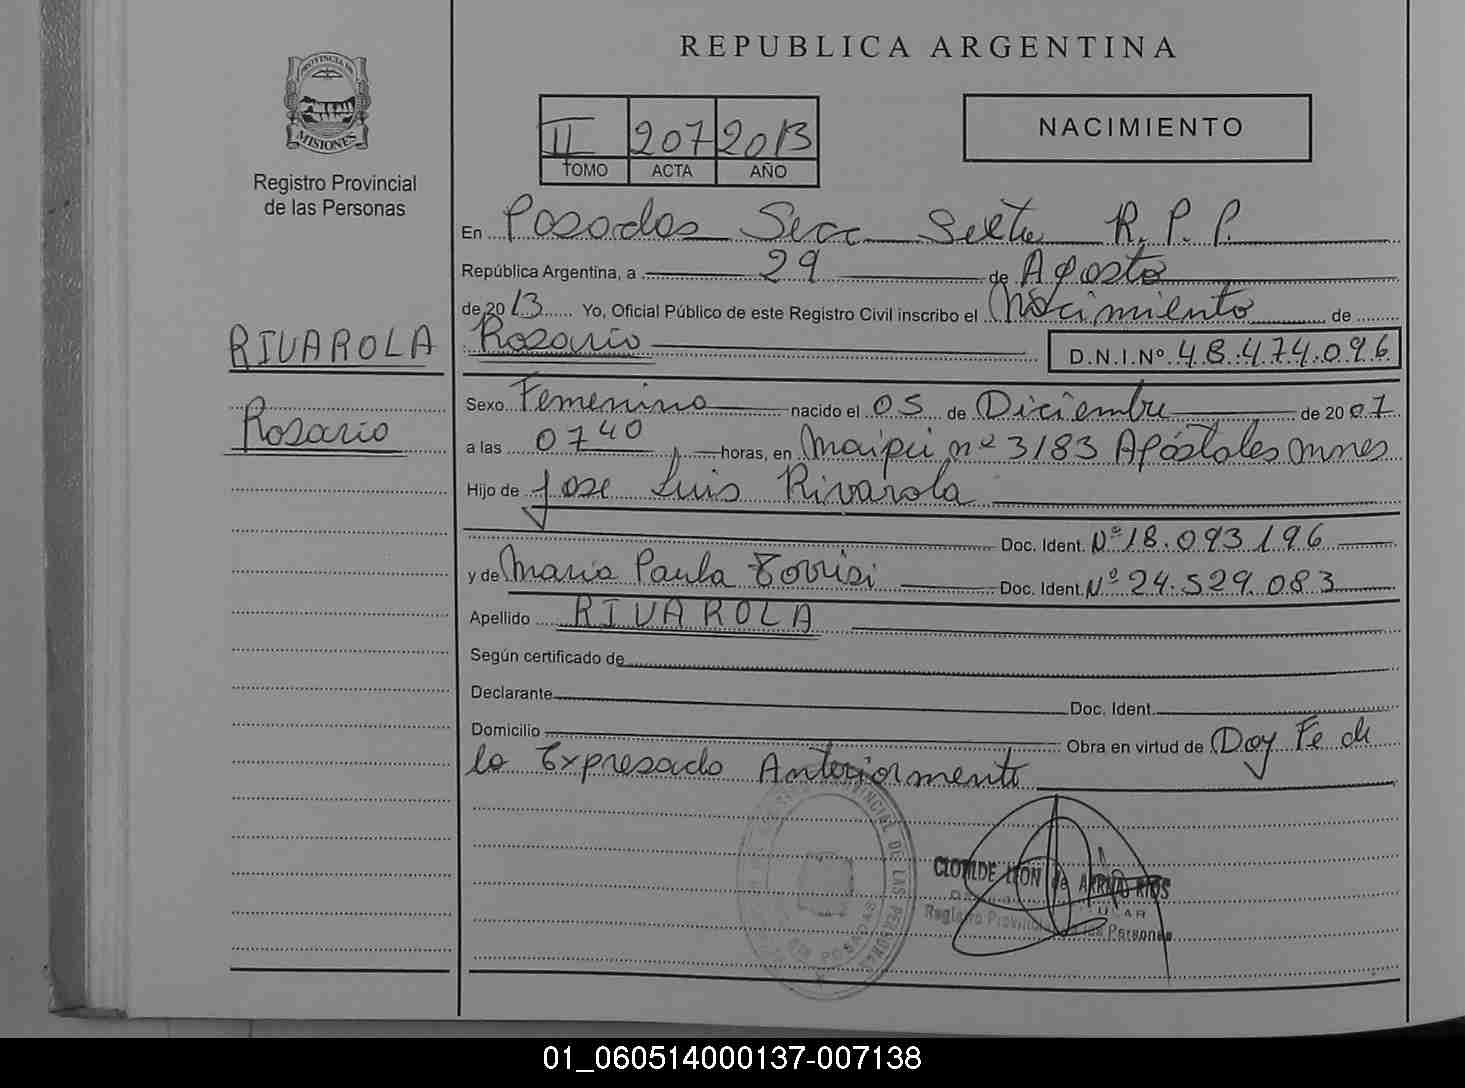 REPUBLICA ARGENTINA
PROVINCIA DE
MISIONES
Registro Provincial
de las Personas
II 207 2013
TOMO ACTA AÑO
NACIMIENTO
En Posadas Secc Sexta R.P.P.
República Argentina, a 29 de Agosto
de 2013 Yo, Oficial Público de este Registro Civil inscribo el Nacimiento de
RIVAROLA
Rosario D.N.I.Nº 48.474.096
Sexo Femenino nacido el 05 de Diciembre de 2007
Rosario
a las 07 40 horas, en Maipú nº 3183 Apóstoles Mnes
Hijo de Jose Luis Rivarola
Doc. Ident. Nº 18.093.196
y de Maria Paula Torrisi Doc. Ident. Nº 24.529.083
Apellido RIVAROLA
Según certificado de
Declarante Doc. Ident.
Domicilio Obra en virtud de Doy Fe de
lo Expresado Anteriormente
PROVINCIAL DE LAS PERSONAS
POSADAS
CLOTILDE LEON de
Registro Provincial de las Personas
01_060514000137-007138